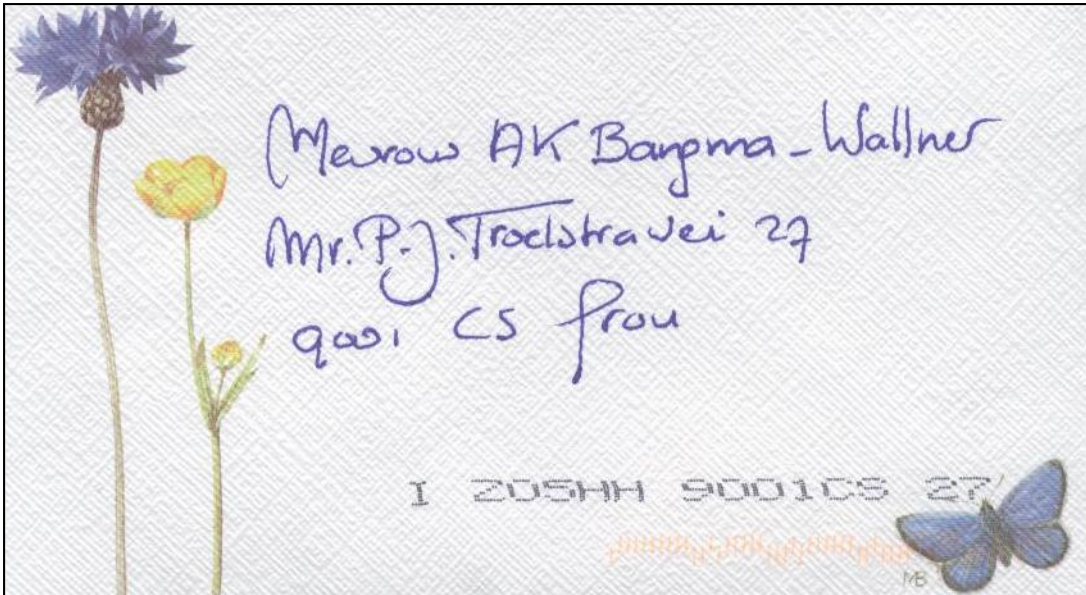 Mevrouw AK Bangma-Wallner
Mr. P.J. Troelstrawei 27
9001 CS Grou
I 205HH 9001CS 27
MB